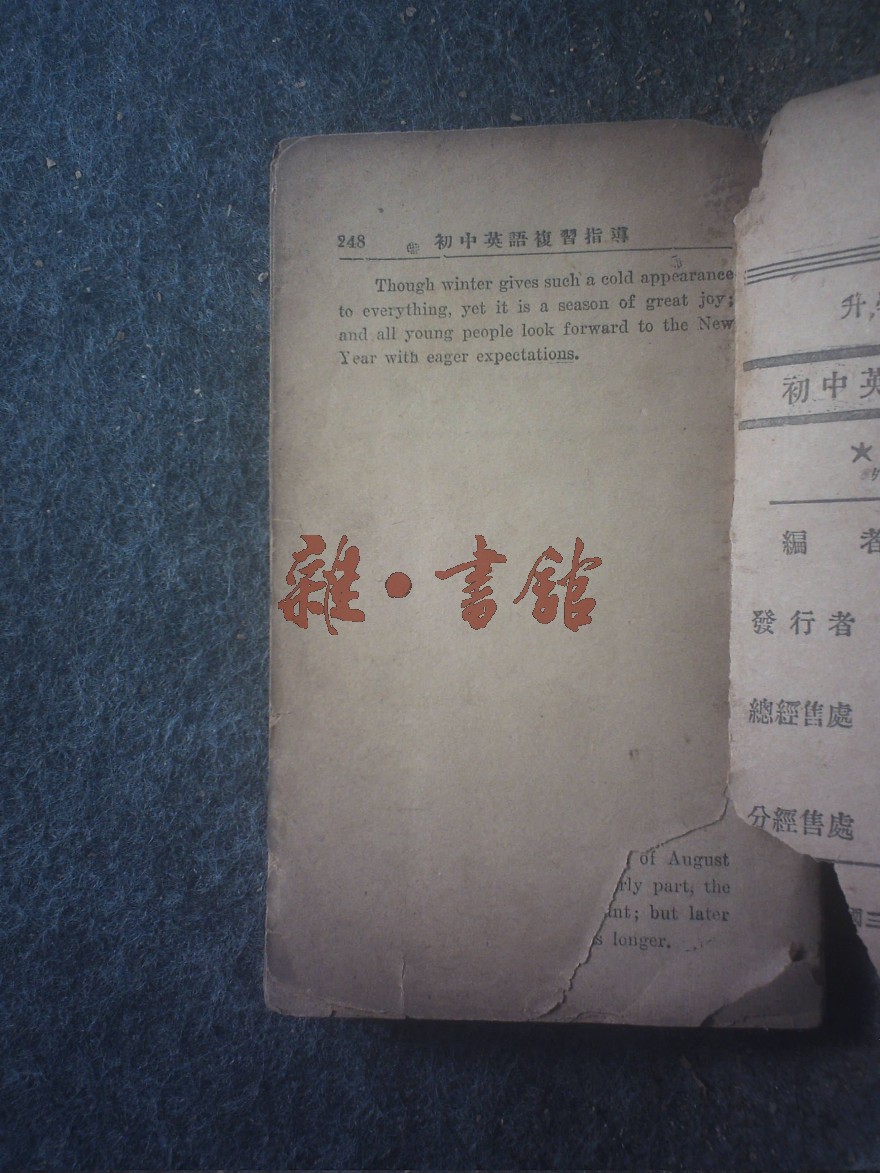 248 初中英語複習指導
Though winter gives such a cold appearance
to everything, yet it is a season of great joy;
and all young people look forward to the New
Year with eager expectations.
雜·書館
of August
rly part, the
nt; but later
s longer.
升
初中英
★
編 者
發行者
總經售處
分經售處
國三